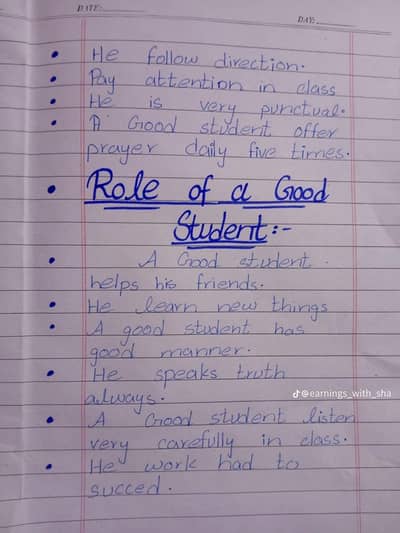 DATE:
DAY:
• He follow direction.
• Pay attention in class
• He is very punctual.
• A Good student offer
prayer daily five times.
• Role of a Good
Student:-
• A Good student.
helps his friends.
• He learn new things
• A good student has
good manner.
• He speaks truth
always.
@earnings_with_sha
• A Good student listen
very carefully in class.
• He work had to
succed.